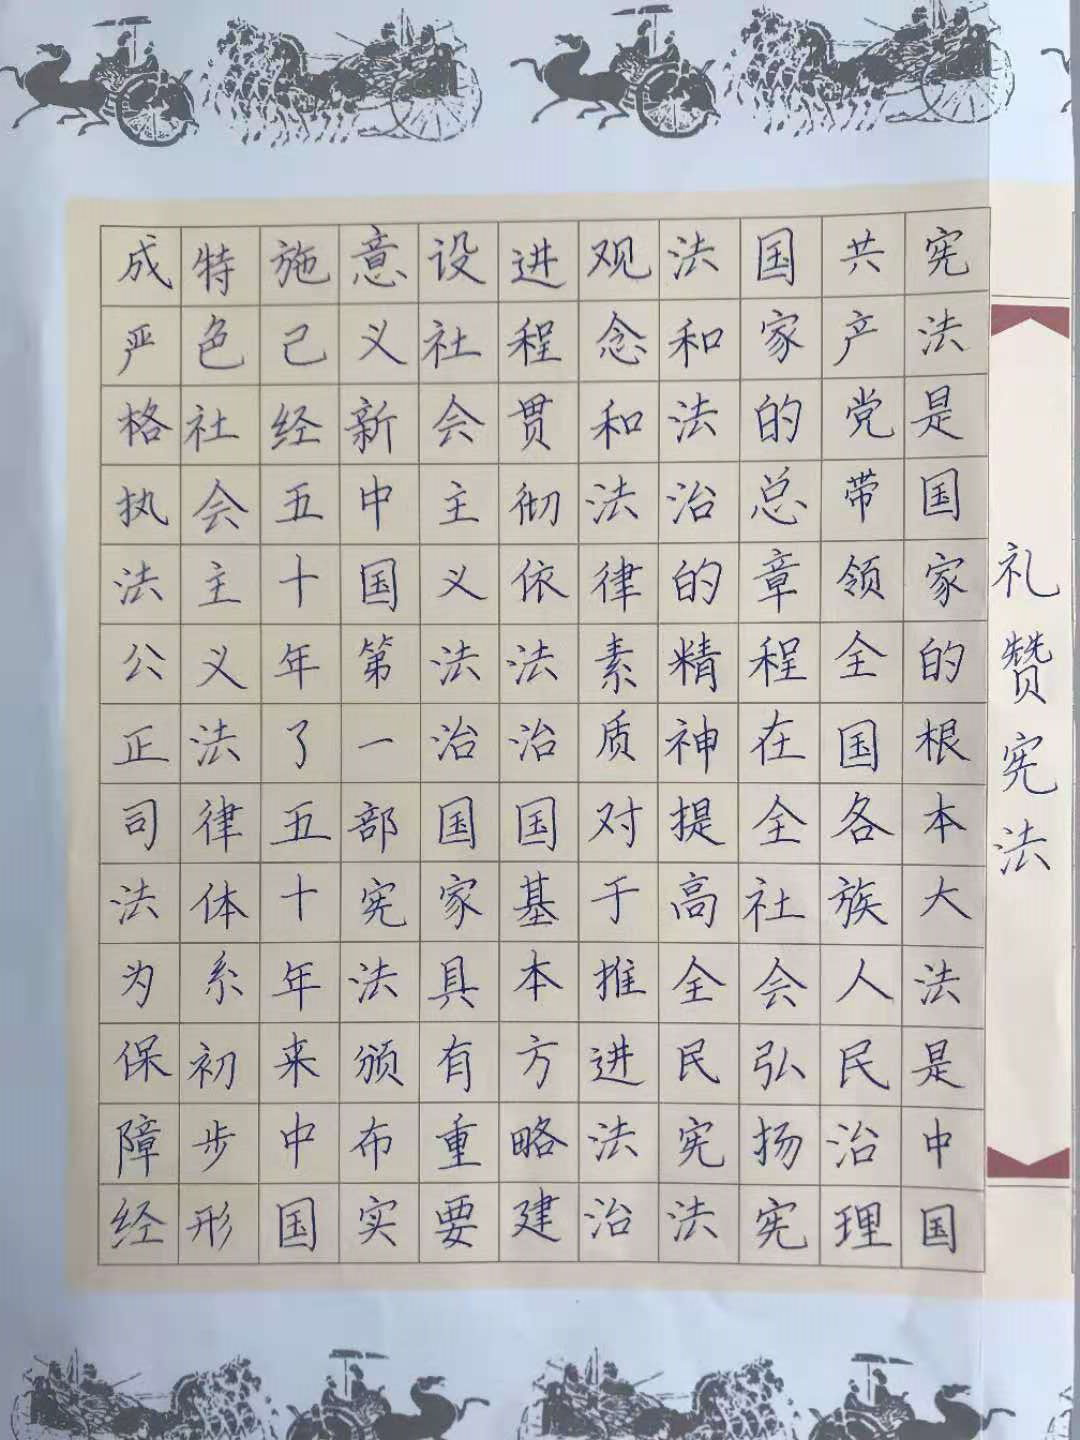 礼赞宪法
宪法是国家的根本大法是中国
共产党带领全国各族人民治理
国家的总章程在全社会弘扬宪
法和法治的精神提高全民宪法
观念和法律素质对于推进法治
进程贯彻依法治国基本方略建
设社会主义法治国家具有重要
意义新中国第一部宪法颁布实
施己经五十年了五十年来中国
特色社会主义法律体系初步形
成严格执法公正司法为保障经